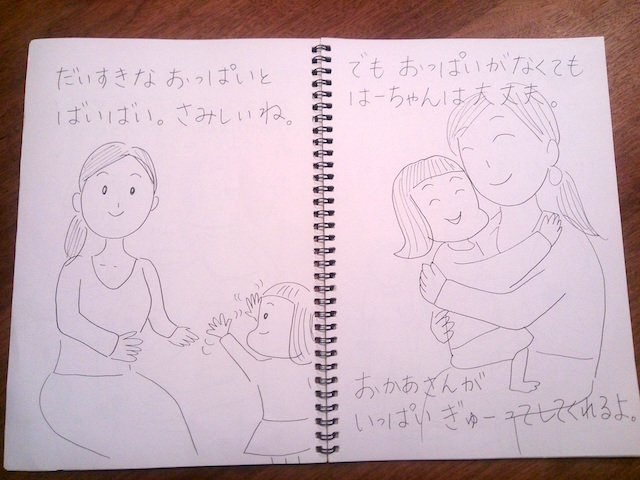 だいすきな おっぱいと
ばいばい。さみしいね。
でも おっぱいがなくても
はーちゃんは大丈夫。
おかあさんが
いっぱい ぎゅーってしてくれるよ。